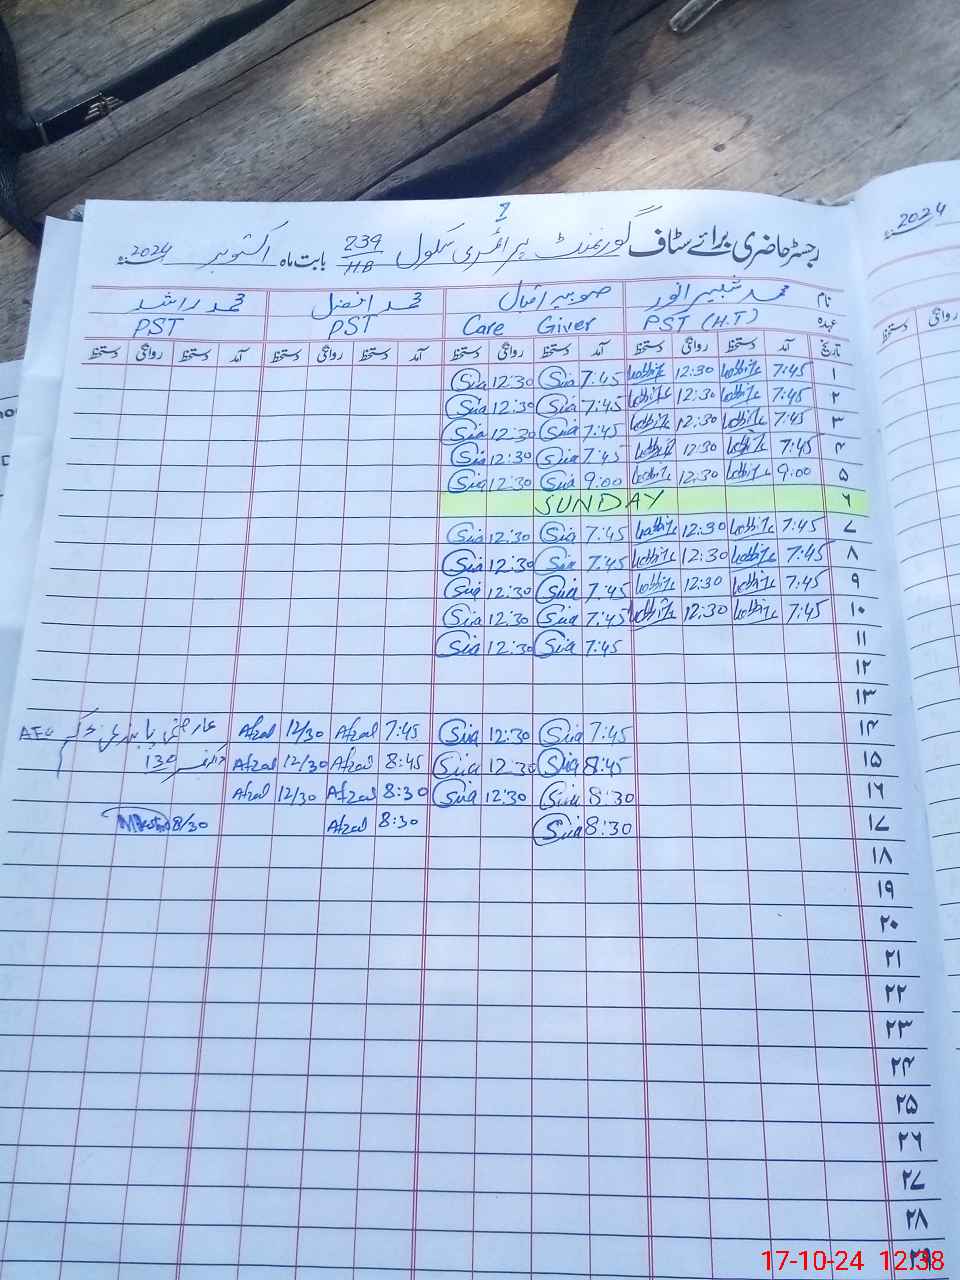 7
رجسٹر حاضری برائے سٹاف گورنمنٹ پرائمری سکول 239/HB بابت ماہ اکتوبر 2024
2024
نام محمد شبیر انور صوبیہ اقبال محمد افضل محمد راشد
عہدہ PST (H.T) Care Giver PST PST
تاریخ آمد دستخط روانگی دستخط آمد دستخط روانگی دستخط آمد دستخط روانگی دستخط آمد دستخط روانگی دستخط
روانگی دستخط
۱ 7:45 12:30 7:45 Sia 12:30 Sia
۲ 7:45 12:30 7:45 Sia 12:30 Sia
۳ 7:45 12:30 7:45 Sia 12:30 Sia
۴ 7:45 12:30 7:45 Sia 12:30 Sia
۵ 9:00 12:30 9:00 Sia 12:30 Sia
۶ SUNDAY
۷ 7:45 12:30 7:45 Sia 12:30 Sia
۸ 7:45 12:30 7:45 Sia 12:30 Sia
۹ 7:45 12:30 7:45 Sia 12:30 Sia
۱۰ 7:45 12:30 7:45 Sia 12:30 Sia
۱۱ 7:45 Sia 12:30 Sia
۱۲
۱۳
۱۴ 7:45 Sia 12:30 Sia 7:45 Afzal 12/30 Afzal عارضی
۱۵ 8:45 Sia 12:30 Sia 8:45 Afzal 12/30 Afzal 130
۱۶ 8:30 Sia 12:30 Sia 8:30 Afzal 12/30 Afzal
۱۷ 8:30 Sia 8:30 Afzal 8/30
۱۸
۱۹
۲۰
۲۱
۲۲
۲۳
۲۴
۲۵
۲۶
۲۷
۲۸
۲۹
17-10-24 12:38